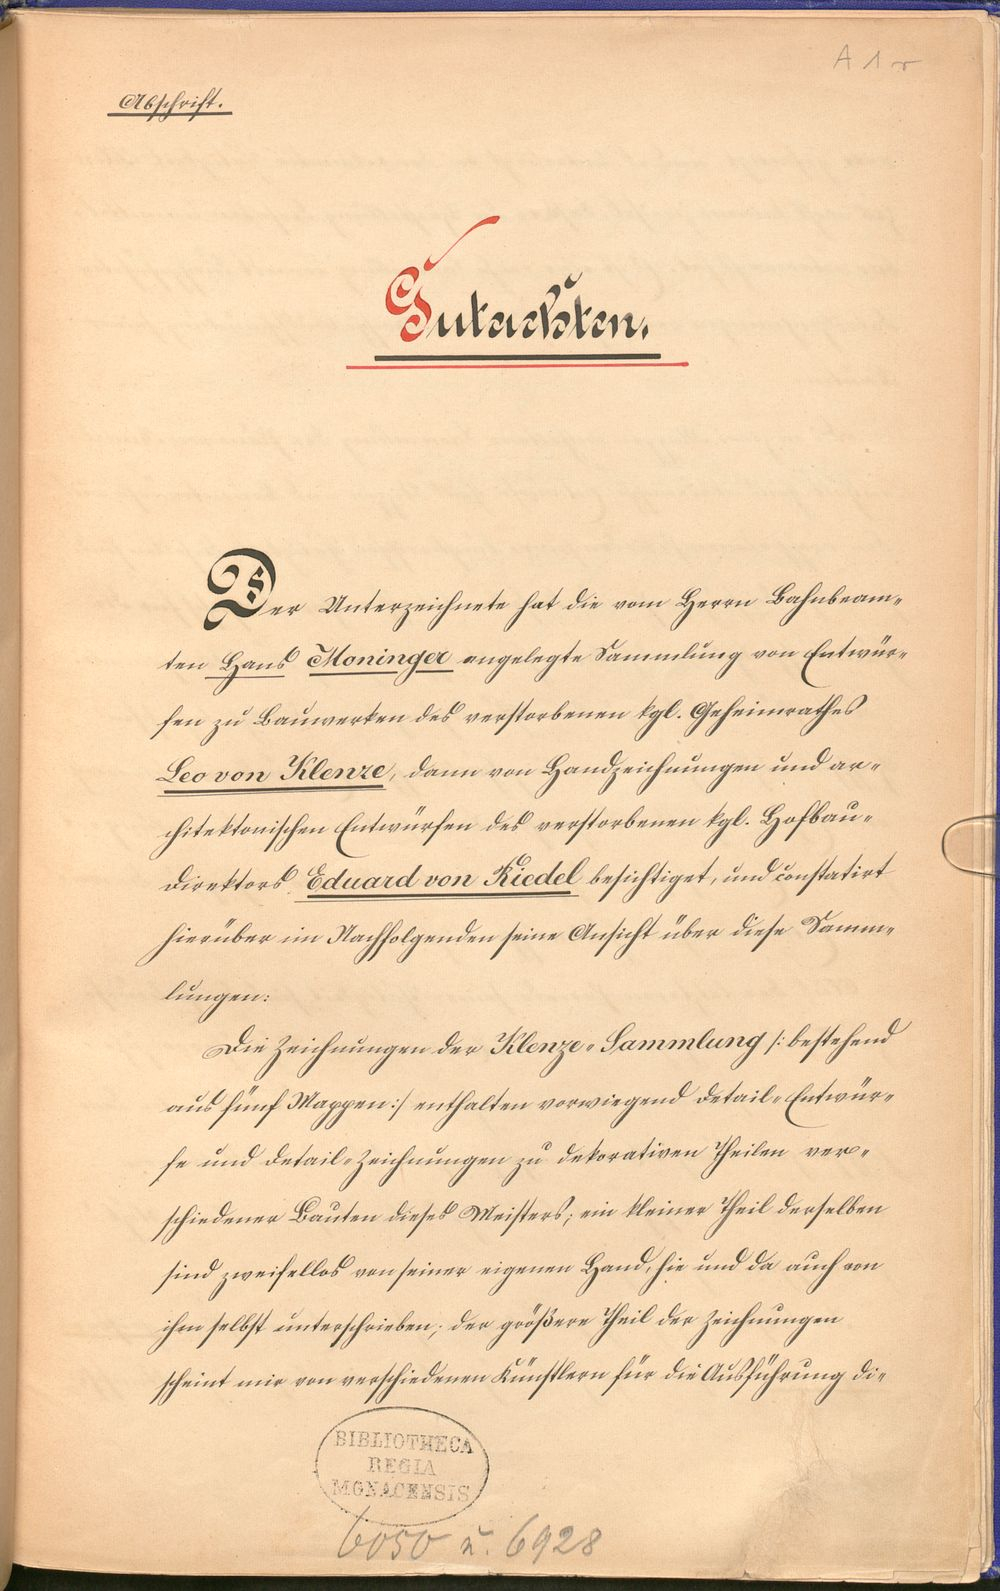 A 1 r
Abschrift.
Gutachten.
Der Unterzeichnete hat die vom Herrn Bahnbeam-
ten Hans Moninger angelegte Sammlung von Entwür-
fen zu Bauwerken des verstorbenen kgl. Geheimrathes
Leo von Klenze, dann von Handzeichnungen und ar-
chitektonischen Entwürfen des verstorbenen kgl. Hofbau-
direktors Eduard von Riedel besichtiget, und constatirt
hierüber im Nachfolgenden seine Ansicht über diese Samm-
lungen:
Die Zeichnungen der Klenze-Sammlung /: bestehend
aus fünf Mappen :/ enthalten vorwiegend Detail-Entwür-
fe und Detail-Zeichnungen zu dekorativen Theilen ver-
schiedener Bauten dieses Meisters; ein kleiner Theil derselben
sind zweifellos von seiner eigenen Hand, hie und da auch von
ihm selbst unterschrieben; der größere Theil der Zeichnungen
scheint mir von verschiedenen Künstlern für die Ausführung di-
BIBLIOTHECA
REGIA
MONACENSIS
6050 u. 6928